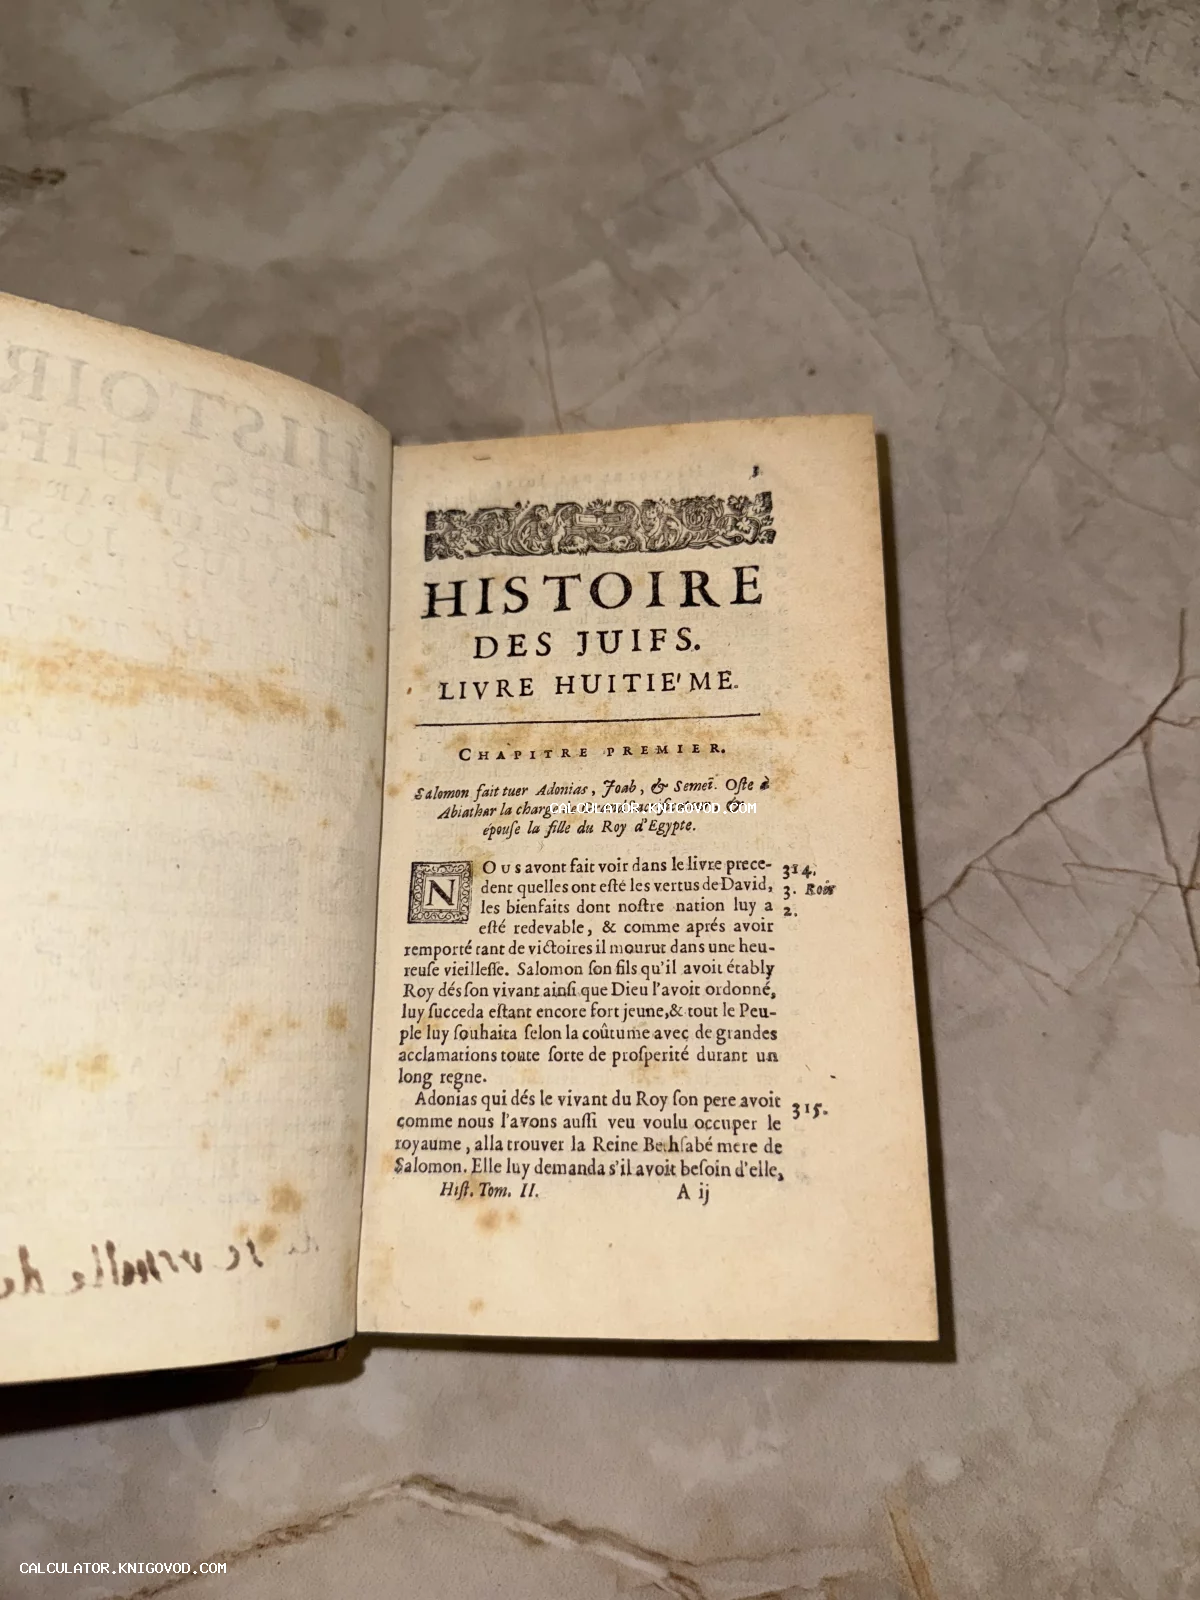 3
HISTOIRE
DES JUIFS.
LIVRE HUITIE'ME.
CHAPITRE PREMIER.
Salomon fait tuer Adonias, Joab, & Semeï. Oſte à
Abiathar la charge de Grand &
épouſe la fille du Roy d'Egypte.
CALCULATOR.KNIGOVOD.COM
NOUS avont fait voir dans le livre prece-
dent quelles ont eſté les vertus de David,
les bienfaits dont noſtre nation luy a
eſté redevable, & comme aprés avoir
remporté tant de victoires il mourut dans une heu-
reuſe vieilleſſe. Salomon ſon fils qu'il avoit étably
Roy dés ſon vivant ainſi que Dieu l'avoit ordonné,
luy ſucceda eſtant encore fort jeune, & tout le Peu-
ple luy ſouhaita ſelon la coûtume avec de grandes
acclamations toute ſorte de proſperité durant un
long regne.
314.
3. Rois
2.
Adonias qui dés le vivant du Roy ſon pere avoit
comme nous l'avons auſſi veu voulu occuper le
royaume, alla trouver la Reine Bethſabé mere de
Salomon. Elle luy demanda s'il avoit beſoin d'elle,
315.
Hiſt. Tom. II.
A ij
CALCULATOR.KNIGOVOD.COM
CALCULATOR.KNIGOVOD.COM